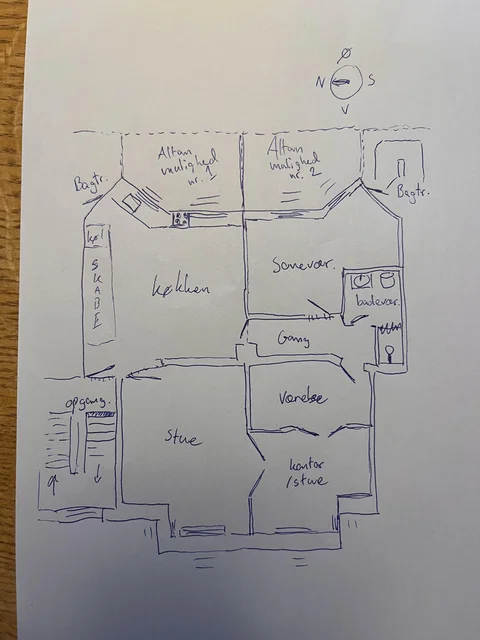 Ø
N
S
V
Altan
mulighed
nr. 1
Altan
mulighed
nr. 2
Bagtr.
Bagtr.
køl
SKABE
Køkken
Sovevær.
badevær.
Gang
opgang.
Værelse
Stue
kontor
/stue